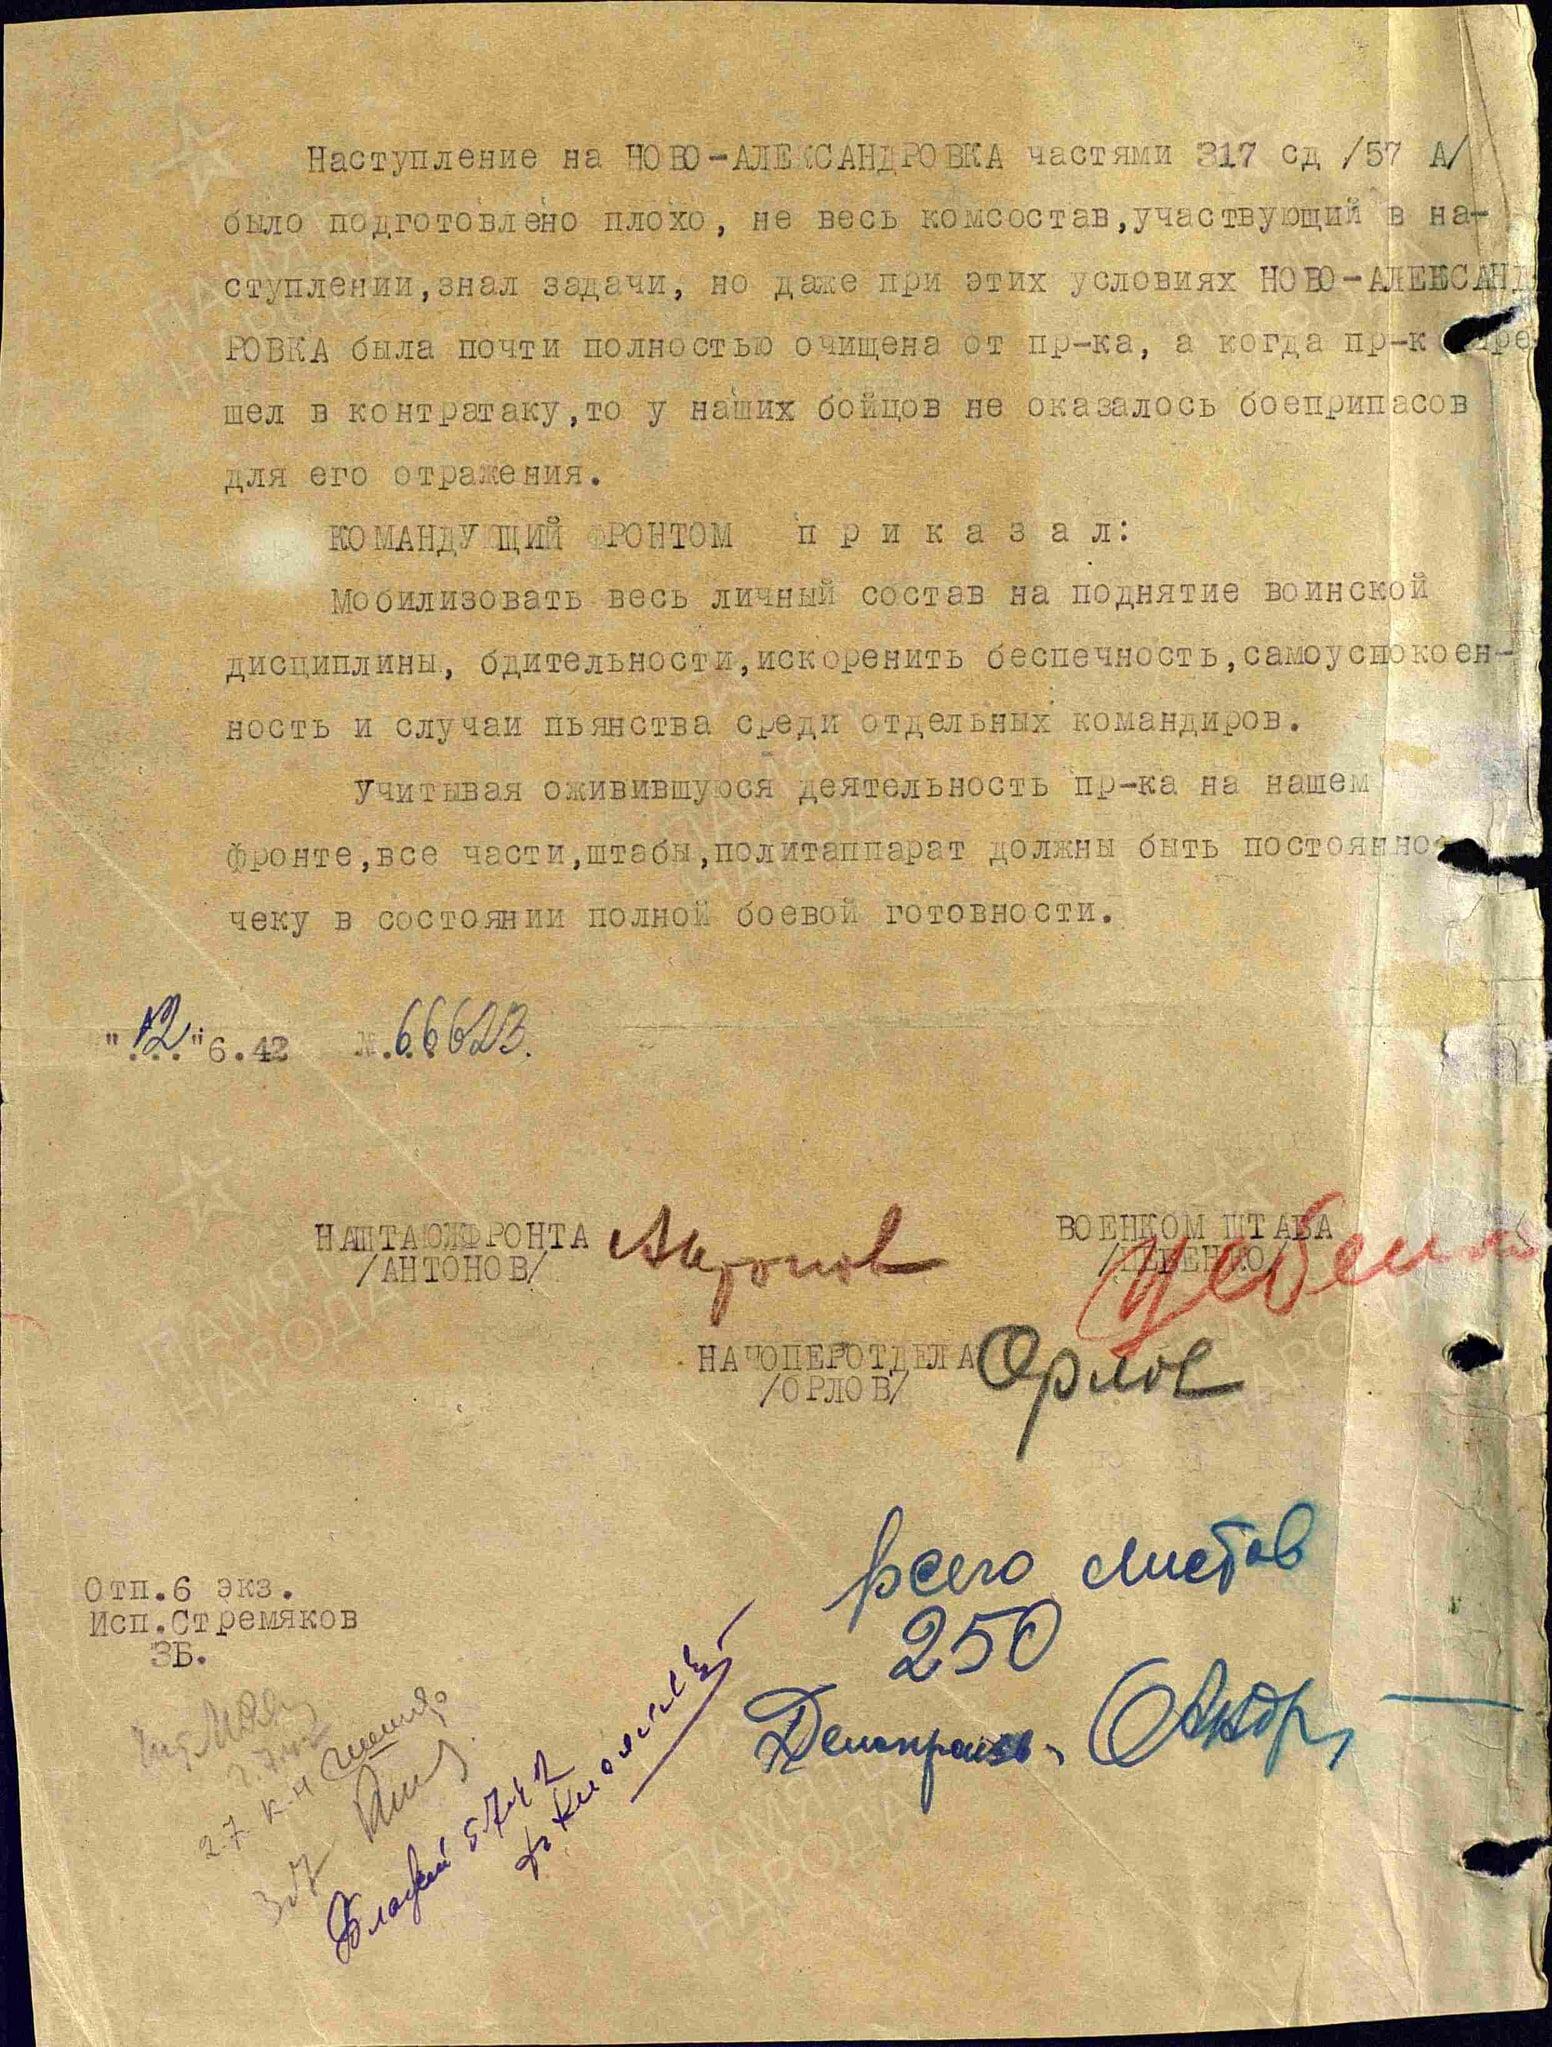 Наступление на НОВО-АЛЕКСАНДРОВКА частями 317 сд /57 А/
было подготовлено плохо, не весь комсостав,участвующий в на-
ступлении,знал задачи, но даже при этих условиях НОВО-АЛЕКСАНД
РОВКА была почти полностью очищена от пр-ка, а когда пр-к
шел в контратаку,то у наших бойцов не оказалось боеприпасов
для его отражения.
КОМАНДУЮЩИЙ ФРОНТОМ п р и к а з а л:
Мобилизовать весь личный состав на поднятие воинской
дисциплины, бдительности,искоренить беспечность,самоуспокоен-
ность и случаи пьянства среди отдельных командиров.
Учитывая оживившуюся деятельность пр-ка на нашем
фронте,все части,штабы,политаппарат должны быть постоянно
чеку в состоянии полной боевой готовности.
"12"6.42 №.66623.
НАШТАЮЖФРОНТА Антонов ВОЕНКОМ ШТАБА
/АНТОНОВ/
НАЧОПЕРОТДЕЛА Орлов
/ОРЛОВ/
всего листов
250
Отп.6 экз.
Исп.Стремяков
ЗБ.
ПАМЯТЬ НАРОДА
ПАМЯТЬ НАРОДА
ПАМЯТЬ НАРОДА
ПАМЯТЬ НАРОДА
ПАМЯТЬ НАРОДА
ПАМЯТЬ НАРОДА